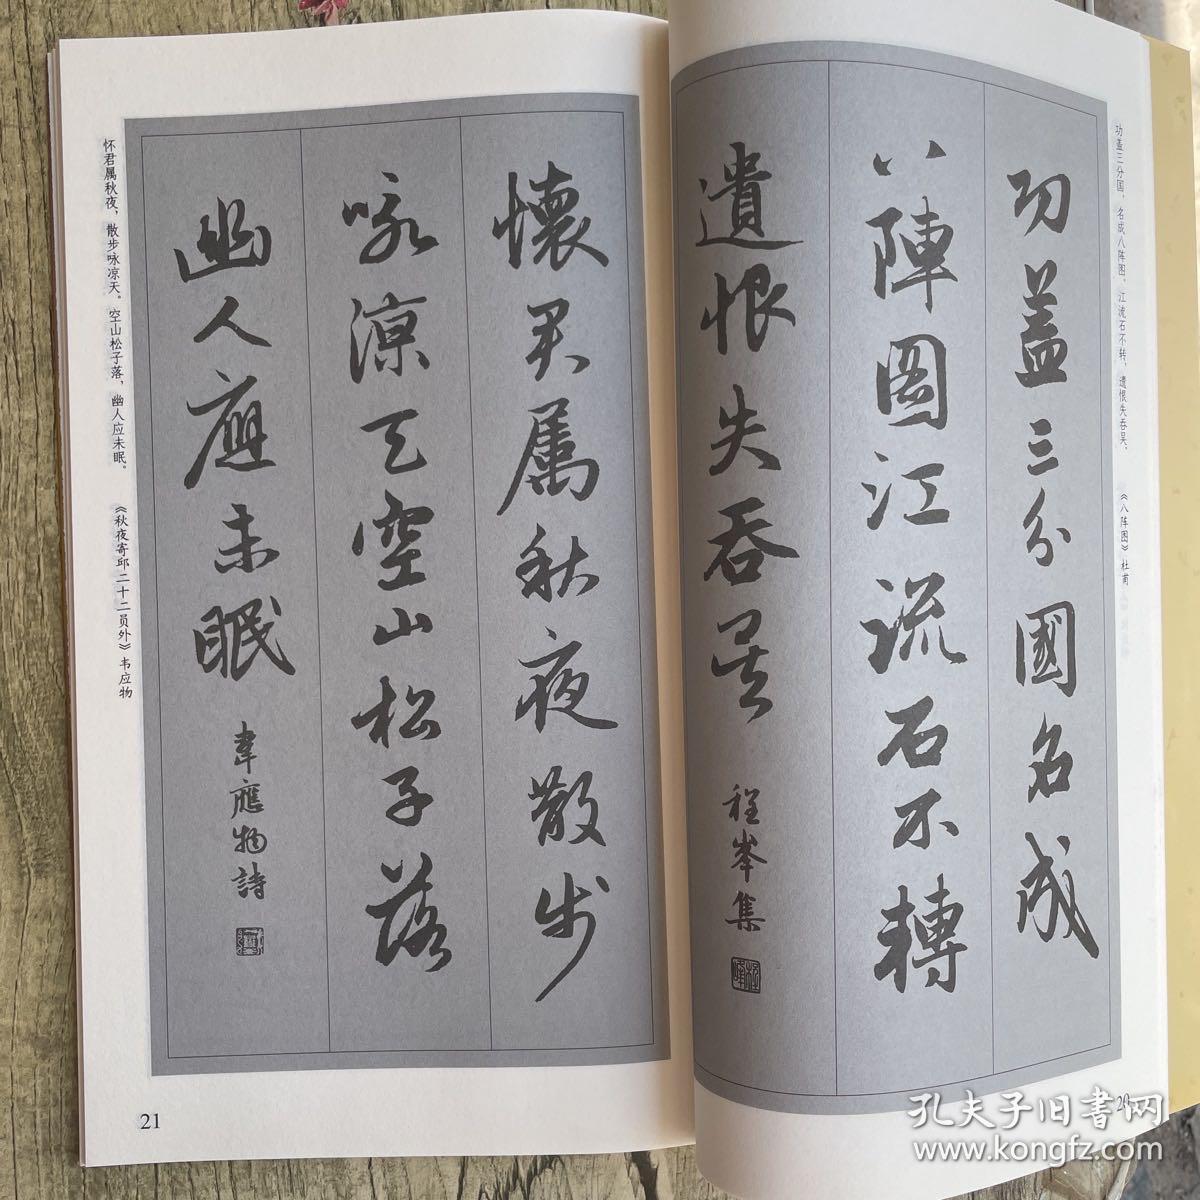 功盖三分国，名成八阵图，江流石不转，遗恨失吞吴。
《八阵图》杜甫
功蓋三分國名成
八陣圖江流石不轉
遺恨失吞吴
程峯集
20
懷君屬秋夜散步
咏涼天空山松子落
幽人應未眠
韋應物詩
怀君属秋夜，散步咏凉天。空山松子落，幽人应未眠。
《秋夜寄邱二十二员外》韦应物
21
孔夫子旧书网
www.kongfz.com